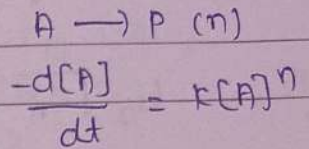 A ⟶ P (n)
-d[A]/dt = K[A]^n